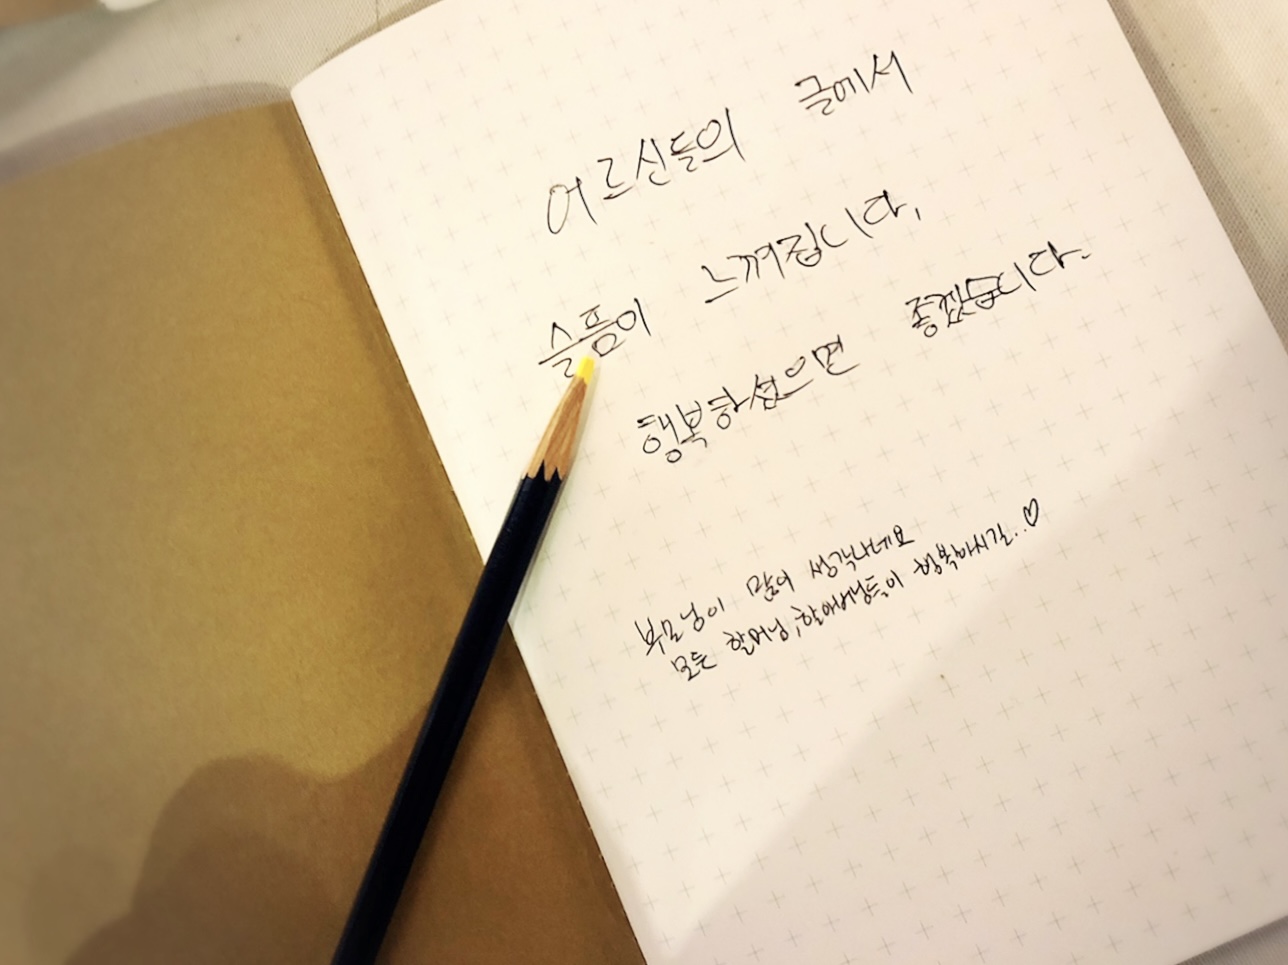 어르신들의 글에서
슬픔이 느껴집니다,
행복하셨으면 좋겠습니다.
부모님이 많이 생각나네요
모든 할머님, 할아버님들이 행복하시길..♡